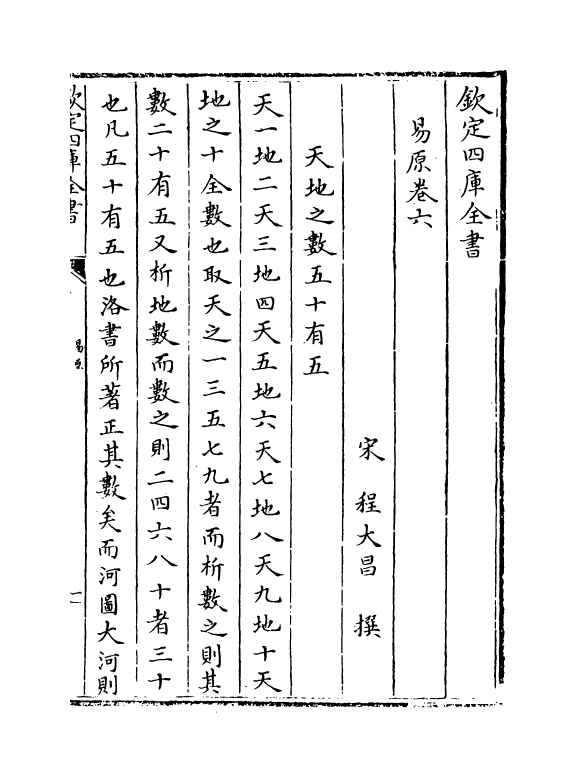 欽定四庫全書
易原卷六
宋 程大昌 撰
天地之數五十有五
天一地二天三地四天五地六天七地八天九地十天
地之十全數也取天之一三五七九者而析數之則其
數二十有五又析地數而數之則二四六八十者三十
也凡五十有五也洛書所著正其數矣而河圖大河則
欽定四庫全書
易原
一